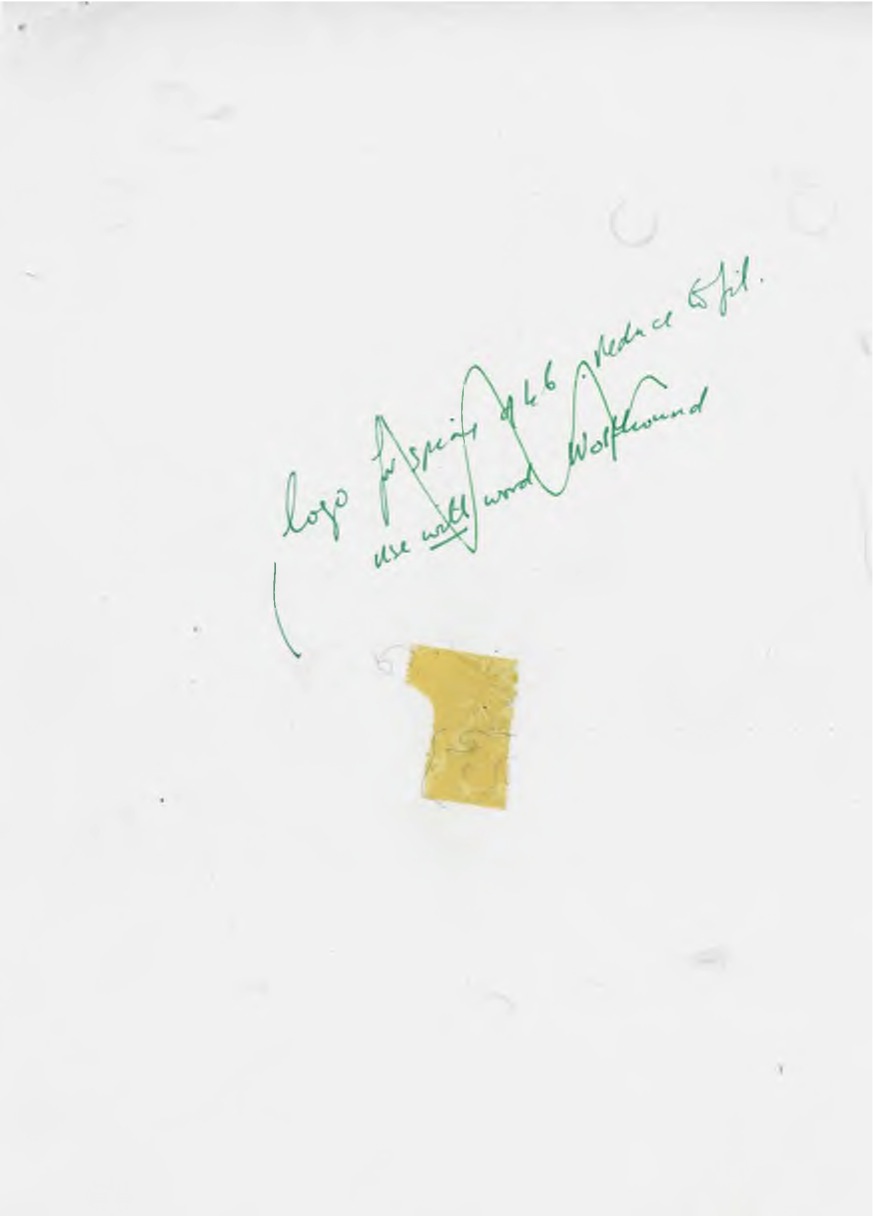 logo for spine of 46. reduce to fit.
use with word Wolfhound